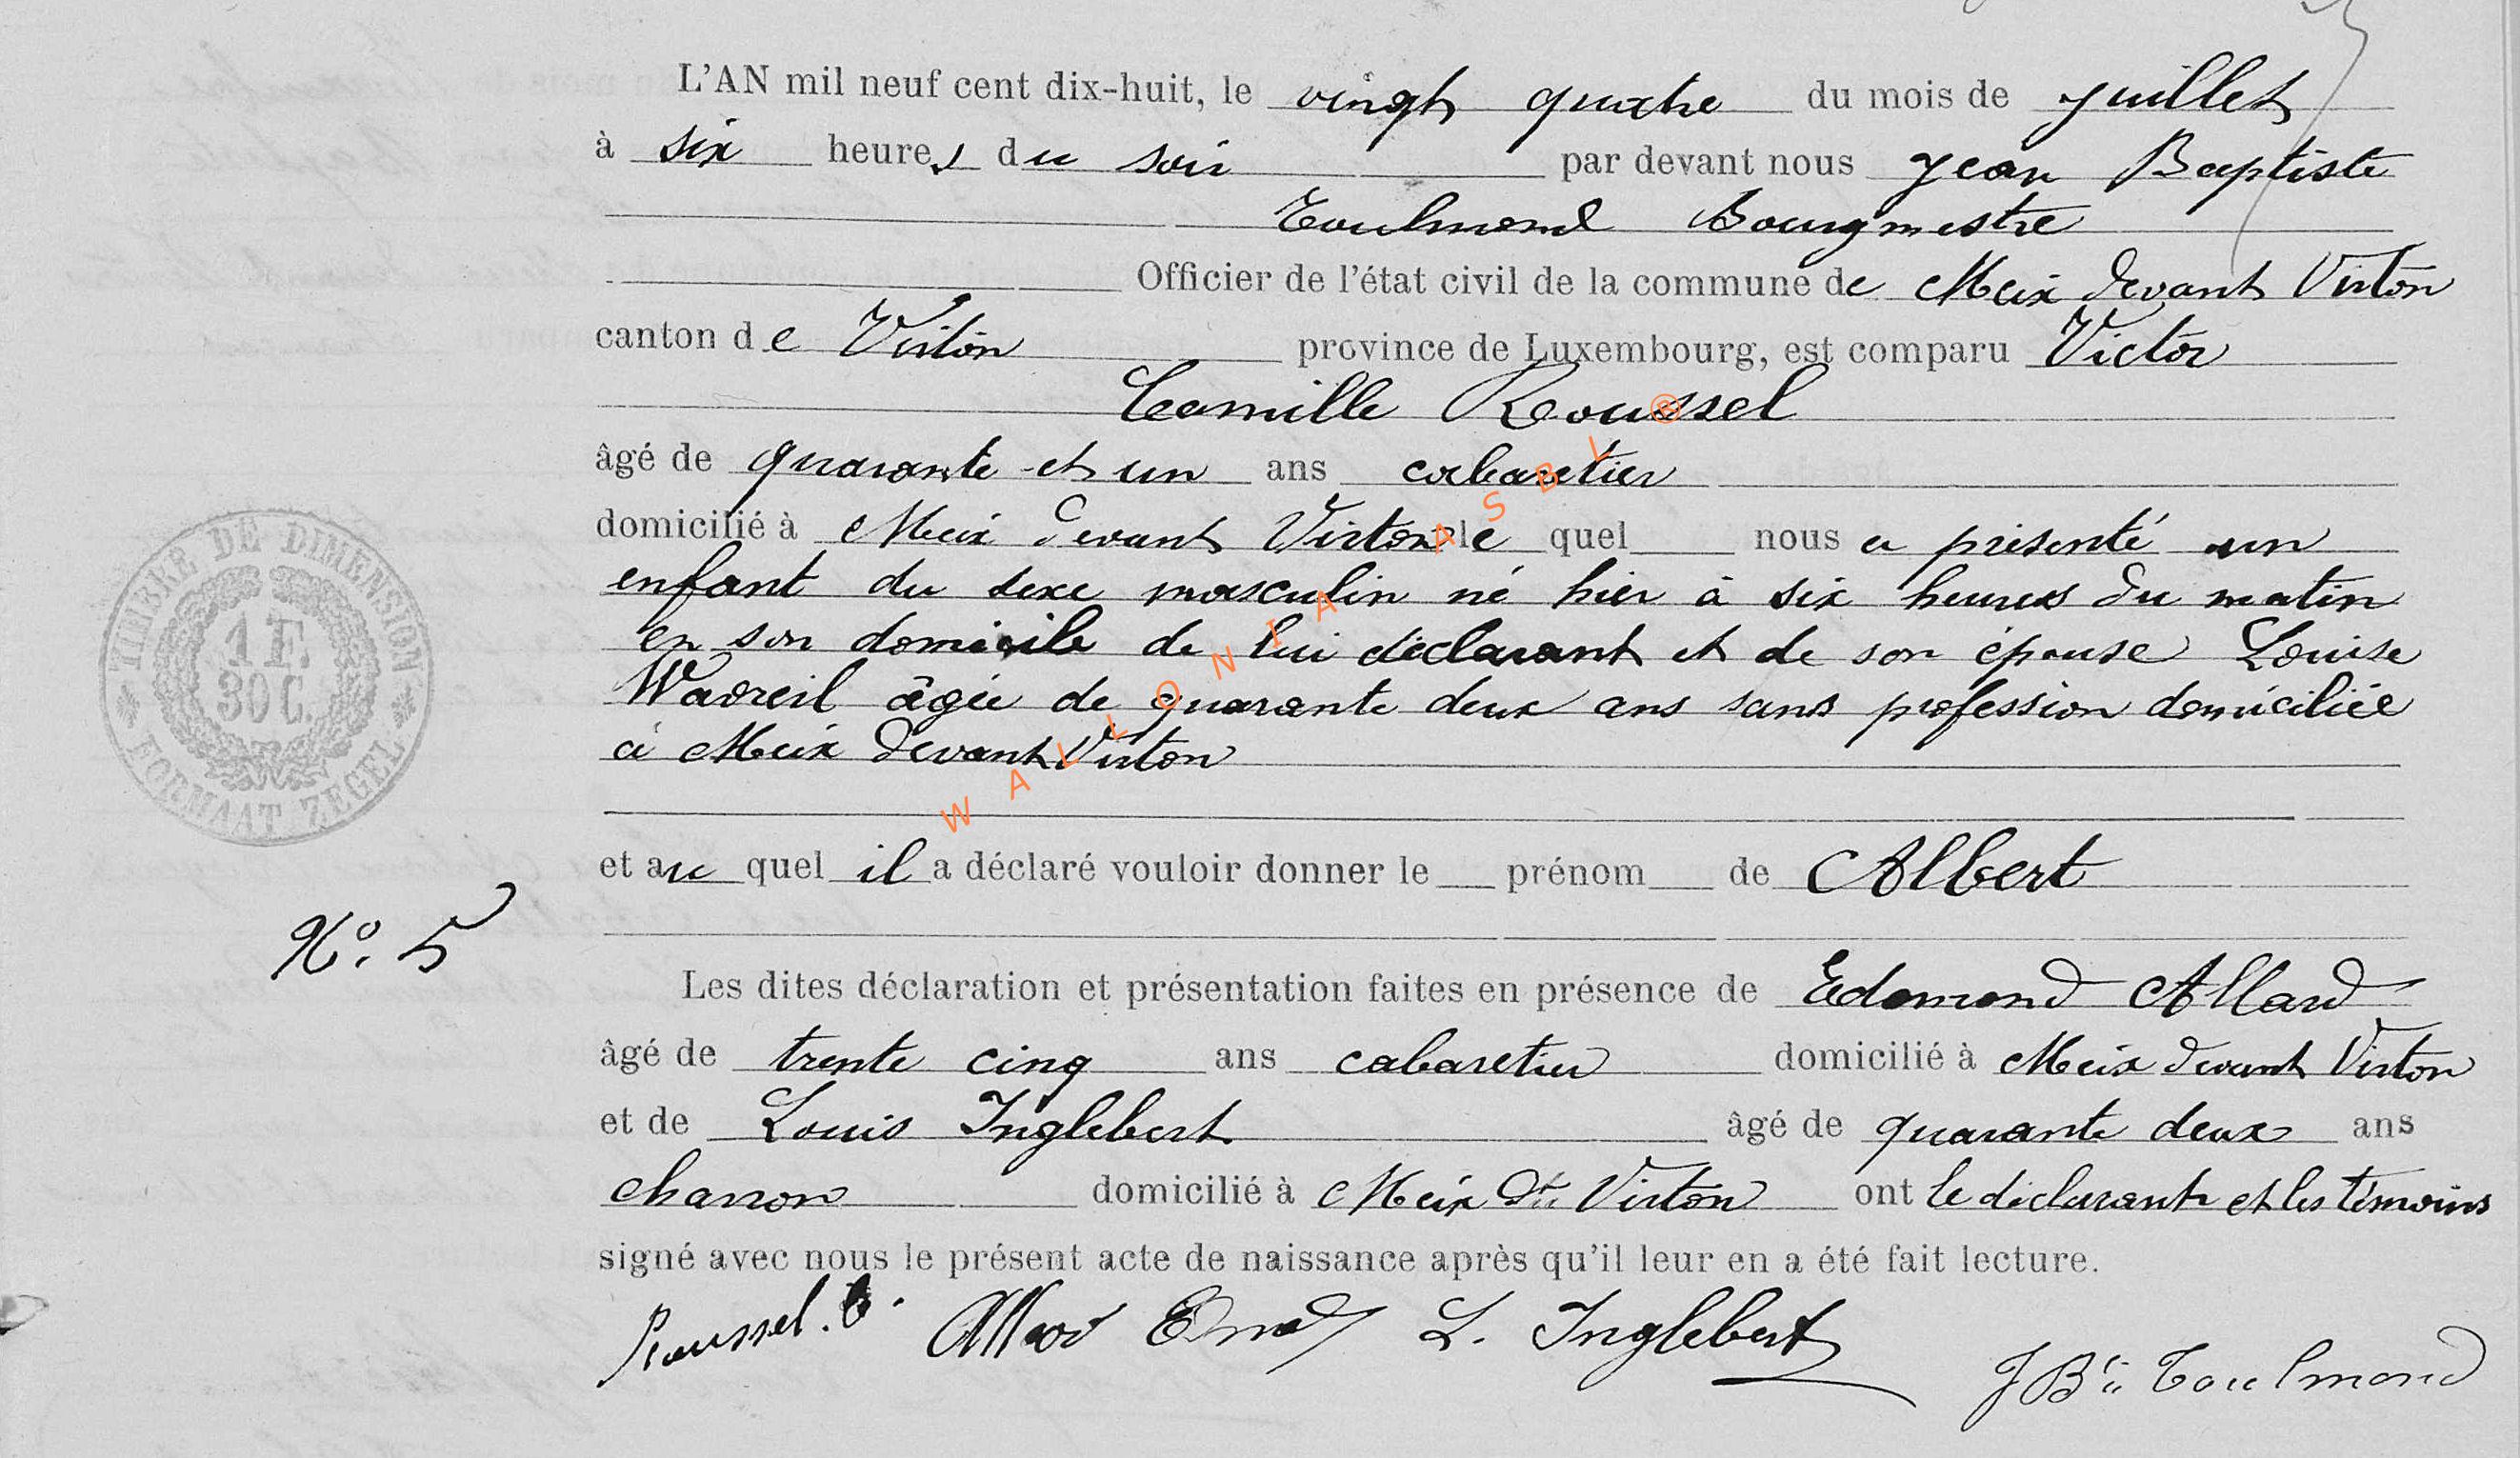 L'AN mil neuf cent dix-huit, le vingt quatre du mois de juillet
à six heures du soir par devant nous Jean Baptiste
Toulmond Bourgmestre
Officier de l'état civil de la commune de Meix devant Virton
canton de Virton province de Luxembourg, est comparu Victor
Camille Roussel
âgé de quarante et un ans cabaretier
domicilié à Meix devant Virton le quel nous a présenté un
enfant du sexe masculin né hier à six heures du matin
en son domicile de lui déclarant et de son épouse Louise
Wavreil âgée de quarante deux ans sans profession domiciliée
à Meix devant Virton
et au quel il a déclaré vouloir donner le prénom de Albert
Les dites déclaration et présentation faites en présence de Edomond Allard
âgé de trente cinq ans cabaretier domicilié à Meix devant Virton
et de Louis Inglebert âgé de quarante deux ans
charron domicilié à Meix dt Virton ont le déclarant et les témoins
signé avec nous le présent acte de naissance après qu'il leur en a été fait lecture.
Roussel. Allard Edmond L. Inglebert
JBte Toulmond
TIMBRE DE DIMENSION
1 F.
30 C.
FORMAAT ZEGEL
No. 5
WALLONIA ASBL ®